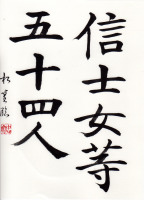 信士女等
五十四人